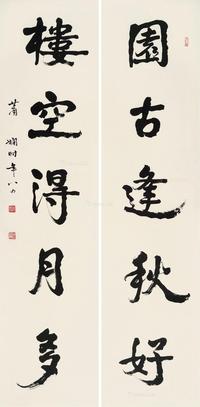 園古逢秋好
樓空得月多
蕭嫻時年八